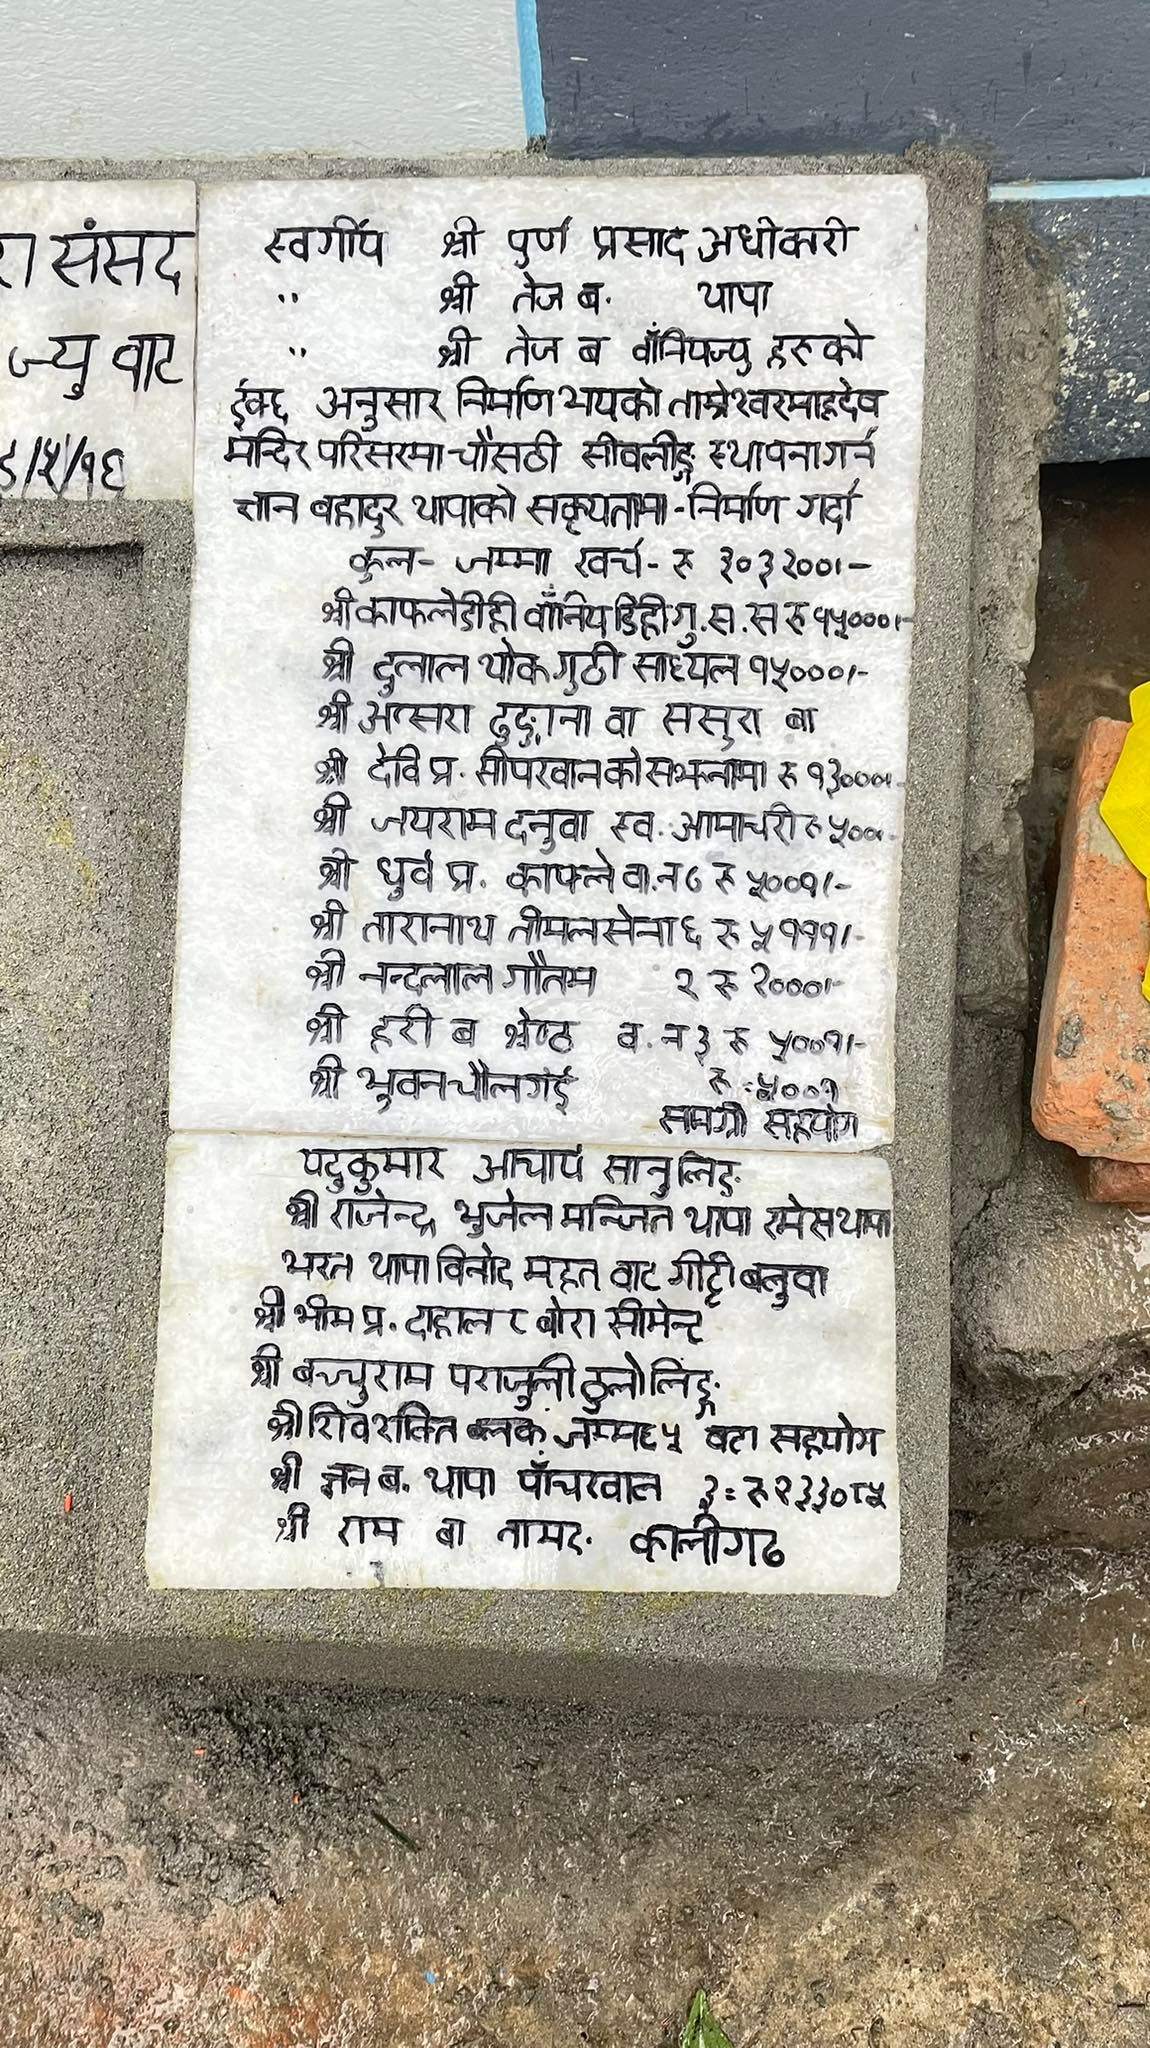 रा संसद
ज्यु वाट
/५/१६
स्वर्गीय श्री पुर्ण प्रसाद अधीकारी
" श्री तेज ब. थापा
" श्री तेज ब वाँनियज्यु हरुको
ईक्छ अनुसार निर्माण भयको ताम्रेश्वरमाहदेव
मन्दिर परिसरमा चौसठी सीवलीङ्ग स्थापना गर्न
ज्ञान बहादुर थापाको सकृयतामा - निर्माण गर्दा
कुल - जम्मा खर्च - रु ३०३२००।-
श्री काफलेडीही वाँनिय डिही गु.स.स रु १५०००।-
श्री दुलाल थोक गुठी साँध्यल १५०००।-
श्री अप्सरा ढुङ्गाना वा ससुरा बा
श्री देवि प्र. सीपखानको सझनामा रु १३०००।-
श्री जयराम दनुवा स्व. आमाचरी रु ५००।-
श्री धुर्व प्र. काफ्ले वा.न ८ रु ५००१।-
श्री तारानाथ तीमलसेना ६ रु ५१११।-
श्री नन्दलाल गौतम २ रु २०००।-
श्री हरी ब श्रेष्ठ व.न ३ रु ५००१।-
श्री भुवन चौलगाई रु. ५००१
सामग्री सहयोग
पदुकुमार आचार्य सानु लिङ
श्री राजेन्द्र भुजेल मन्जित थापा रमेस थापा
भरत थापा विनोद महत वाट गीट्टी बलुवा
श्री भीम प्र. दाहाल ८ बोरा सीमेन्ट
श्री बच्चुराम पराजुली ठुलो लिङ्ग
श्री शिव शक्ति ब्लक जम्म ६५ वटा सहयोग
श्री ज्ञन ब. थापा पाँचखाल ३ = रु २३३०८५
श्री राम बा तामाङ. कालीगढ